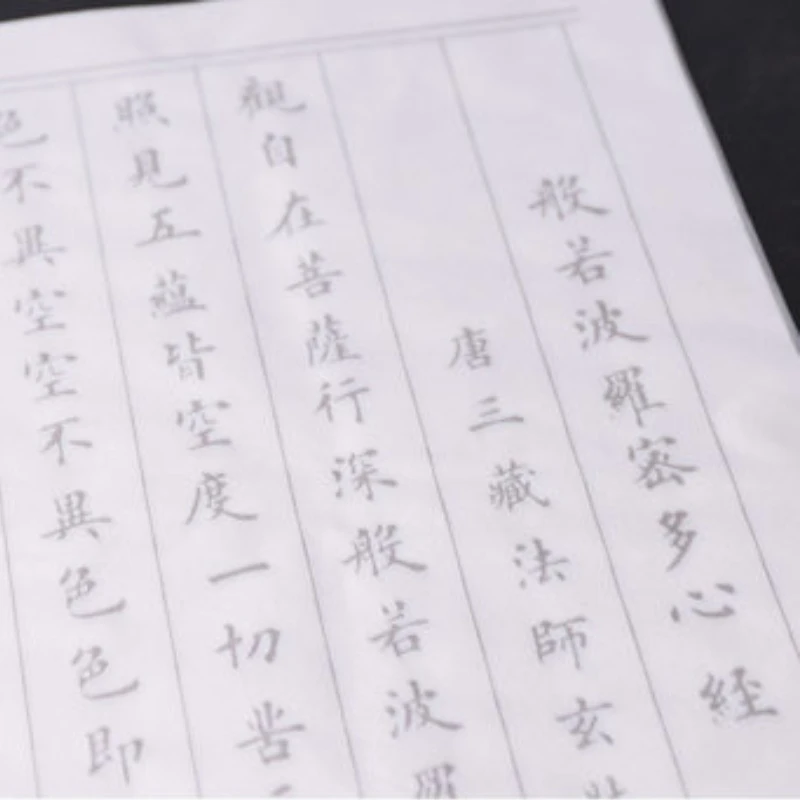 般若波羅密多心經
唐三藏法師玄
觀自在菩薩行深般若波羅
照見五蘊皆空度一切苦
色不異空空不異色色即